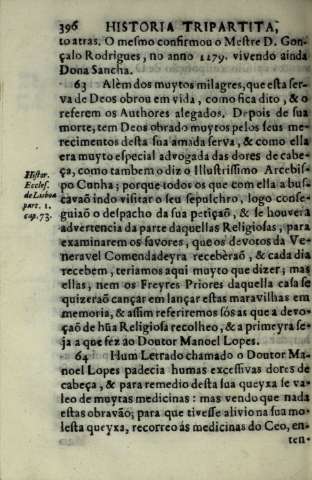 396 HISTORIA TRIPARTITA,
to atras. O mesmo confirmou o Mestre D. Gon-
çalo Rodrigues, no anno 1279. vivendo ainda
Dona Sancha.
63 Alèm dos muytos milagres, que esta ser-
va de Deos obrou em vida, como fica dito, & o
referem os Authores alegados. Depois de sua
morte, tem Deos obrado muytos pelos seus me-
recimentos desta sua amada serva, & como ella
era muyto especial advogada das dores de cabe-
ça, como tambem o diz o Illustrissimo Arcebis-
po Cunha; porque todos os que com ella a bus-
cavaõ indo visitar o seu sepulchro, logo conse-
guiaõ o despacho da sua petiçaõ, & se houvera
advertencia da parte daquellas Religiosas, para
examinarem os favores, que os devotos da Ve-
neravel Comendadeyra receberaõ, & cada dia
recebem, teriamos aqui muyto que dizer; mas
ellas, nem os Freyres Priores daquella casa se
quizeraõ cançar em lançar estas maravilhas em
memoria, & assim referiremos sós as que a devo-
çaõ de hũa Religiosa recolheo, & a primeyra se-
ja a que fez ao Doutor Manoel Lopes.
64 Hum Letrado chamado o Doutor Ma-
noel Lopes padecia humas excessivas dores de
cabeça, & para remedio desta sua queyxa se va-
leo de muytas medicinas: mas vendo que nada
estas obravaõ; para que tivesse alivio na sua mo-
lesta queyxa, recorreo ás medicinas do Ceo, en-
ten-
Histor.
Eccles.
de Lisboa
part. 1.
cap. 73.